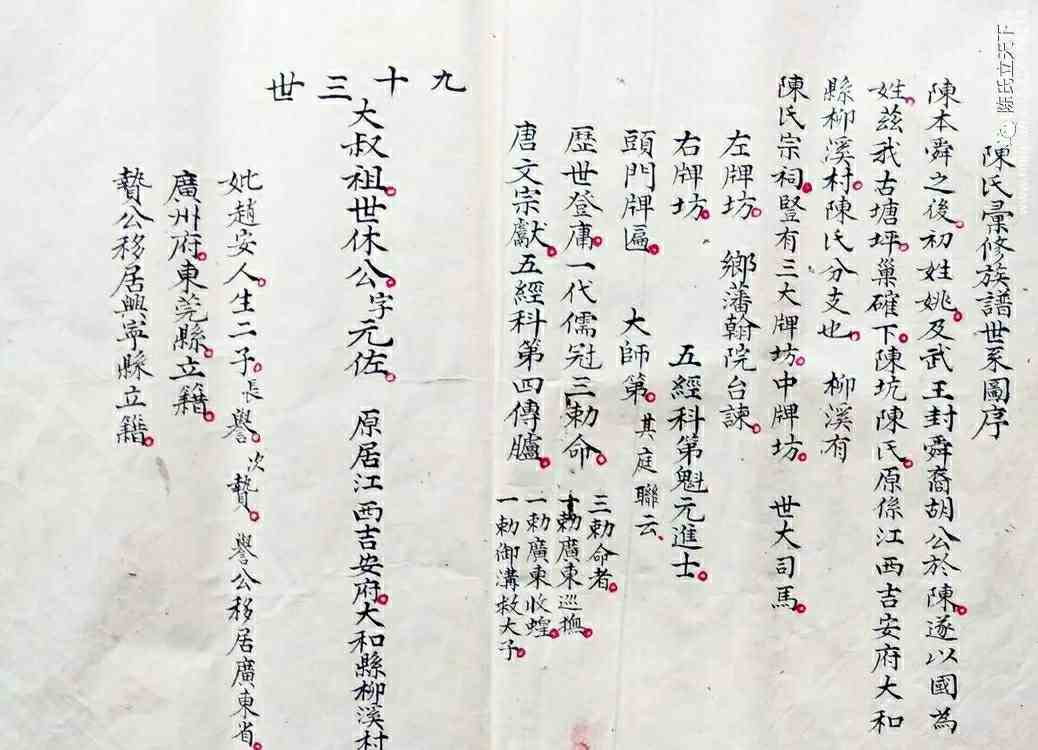 陳氏彙修族譜世系圖序
陳本舜之後初姓姚及武王封舜裔胡公於陳遂以國為
姓茲我古塘坪巢確下陳坑陳氏原係江西吉安府大和
縣柳溪村陳氏分支也 柳溪有
陳氏宗祠豎有三大牌坊中牌坊 世大司馬
左牌坊 鄉藩翰院台諫
右牌坊 五經科第魁元進士
頭門牌匾 大師第 其庭聯云
歷世登庸一代儒冠三勅命 三勅命者
一勅廣東巡撫
唐文宗獻五經科第四傳臚 一勅廣東收蝗
一勅御溝救太子
九十三世
大叔祖世休公字元佐 原居江西吉安府大和縣柳溪村
妣趙安人生二子長譽次贄 譽公移居廣東省
廣州府東莞縣立籍
贄公移居興寧縣立籍
陈氏立天下